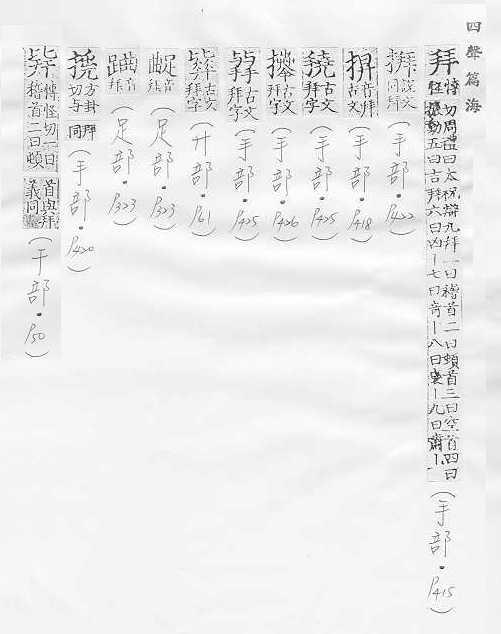 四聲篇海
拜 博怪切周禮曰太祝辯九拜一曰稽首二曰頓首三曰空首四曰振動五曰吉拜六曰凶丨七曰奇丨八曰褒丨九曰肅丨 (手部·P415)
說文同拜 (手部·P422)
音拜古文 (手部·P418)
古文拜字 (手部·P425)
古文拜字 (手部·P426)
古文拜字 (手部·P425)
古文拜字 (廾部·P61)
音拜 (足部·P323)
音拜 (足部·P323)
方卦切与拜同 (手部·P420)
博怪切一曰稽首二曰頓首與拜義同 (手部·P50)